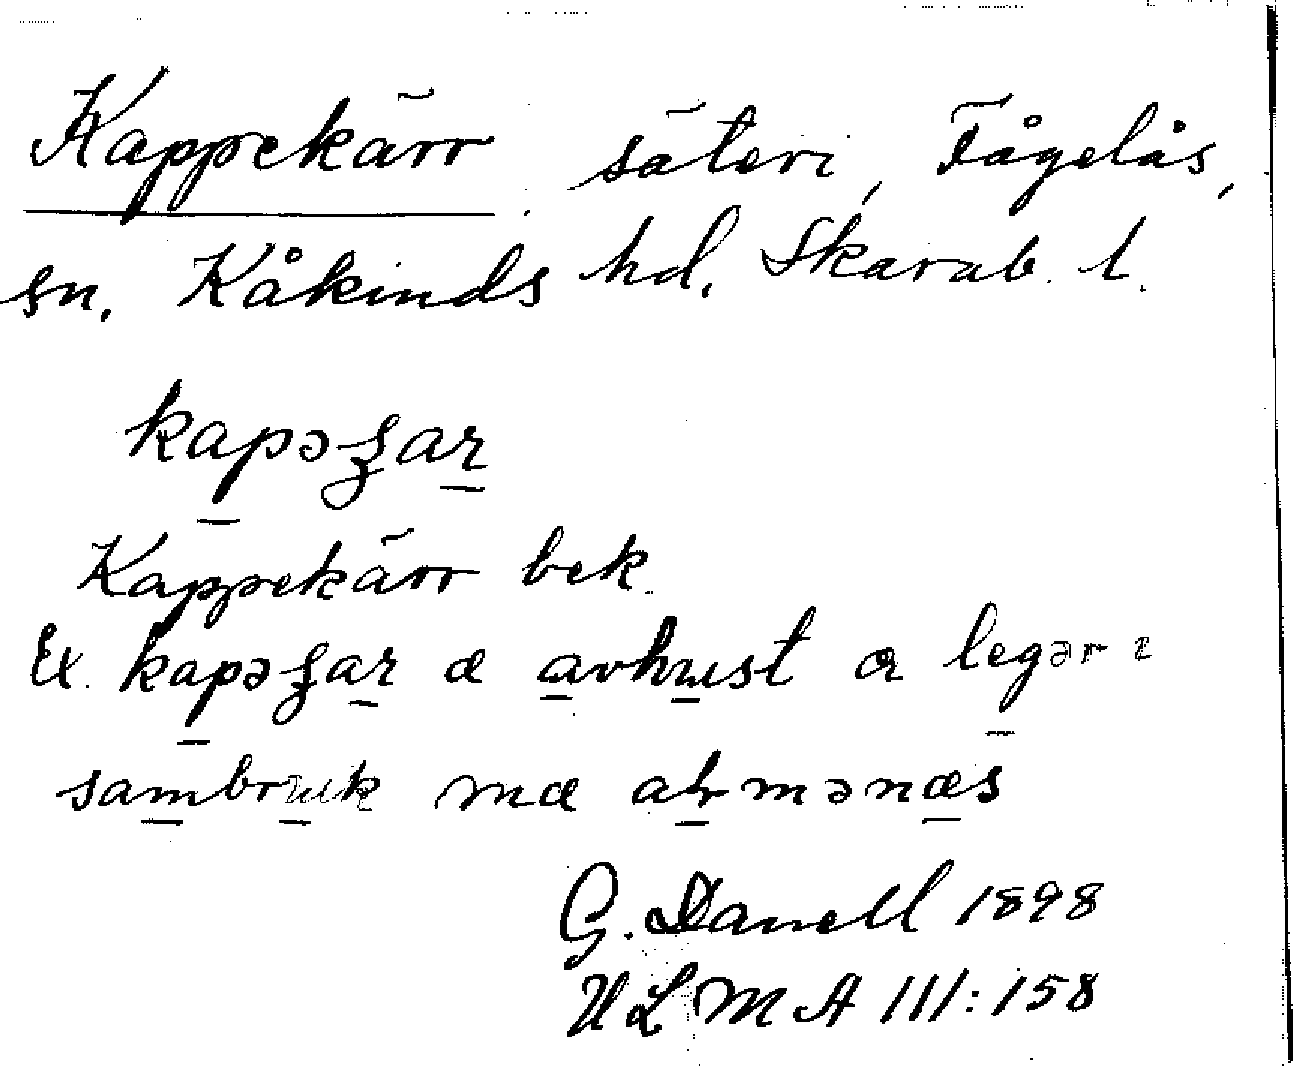 Kappekärr säteri, Fågelås,
sn. Kåkinds hd. Skarab. l.
kapəʒar
Kappekärr bek.
Ex. kapəʒar æ avhust a legər ı
sambruk mæ ahmənæs
G. Danell 1898
ULMA 111:158